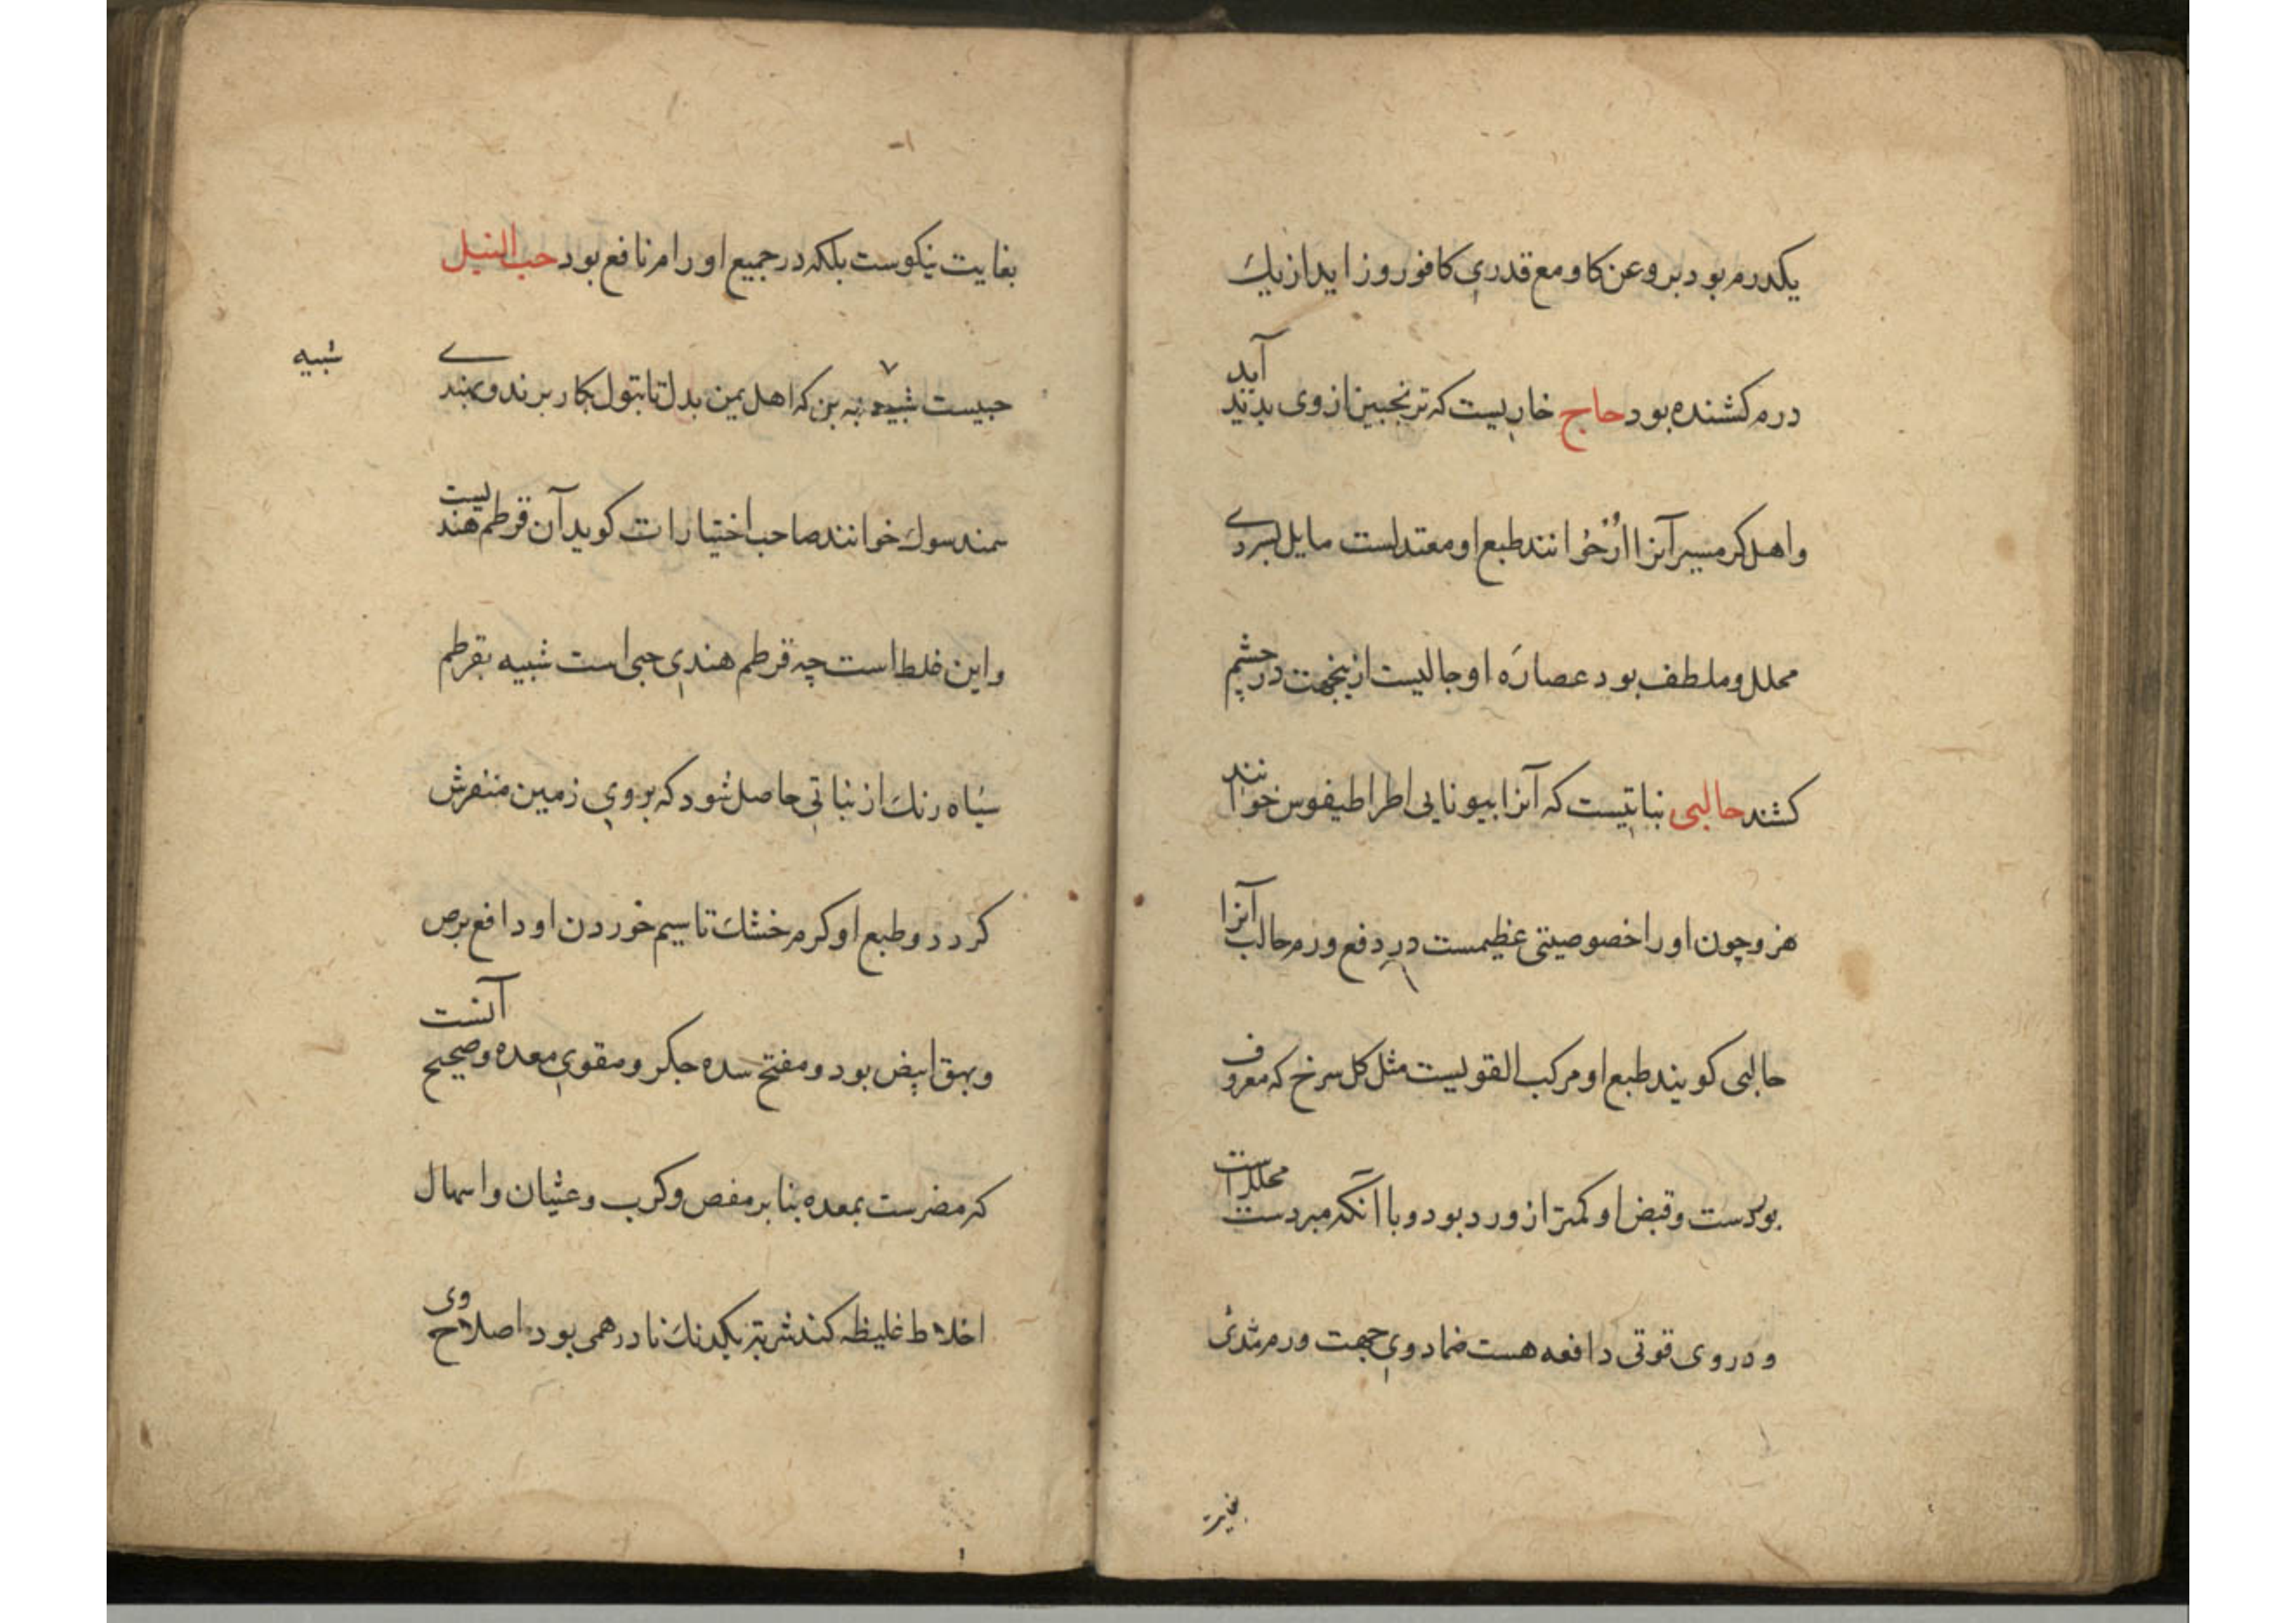 یکدرم بود بروغن کاو مع قدری کافور و زاید از یك
درم کشنده بود حاج خاریست که ترنجبین از وی بدید آید
و اهل کرمسیر آنرا اُژخُوانند طبع او معتدلست مایل بسردے
محلل و ملطف بود عصارَه او جالیست ازینجهت در چشم
کشند حالبی نباتیست که آنرا بیونانی اطراطیفوس خوانند
هز و چون او را خصوصیتی عظیمست در دفع ورم حالب آنرا
حالبی کویند طبع او مرکب القویست مثل کل سرخ که معروف
بوردست و قبض او کمتر از ورد بود و با آنکه مبردست محللست
و در وی قوتی دافعه هست ضماد وی جهت ورم ثدی
بغایت
بغایت نیکوست بلکه در جمیع اورام نافع بود حب النیل
حبیست شبیه به بن که اهل یمن بدل تابتول بکار برند و بهندے
شبیه
سمندسوك خوانند صاحب اختیارات کوید آن قرطم هندیست
و این غلط است چه قرطم هندی حبی است شبیه بقرطم
سیاه رنك از نباتی حاصل شود که بر روی زمین منفرش
کردد و طبع او کرم خشك تا سیم خوردن او دافع برص
و بهق ابیض بود و مفتح سده جکر و مقوی معده و صحیح آنست
که مضرست بمعده بنا بر مفص و کرب و غثیان و اسهال
اخلاط غلیظه کند شربتی یکدنك تا درهمی بود اصلاح وی